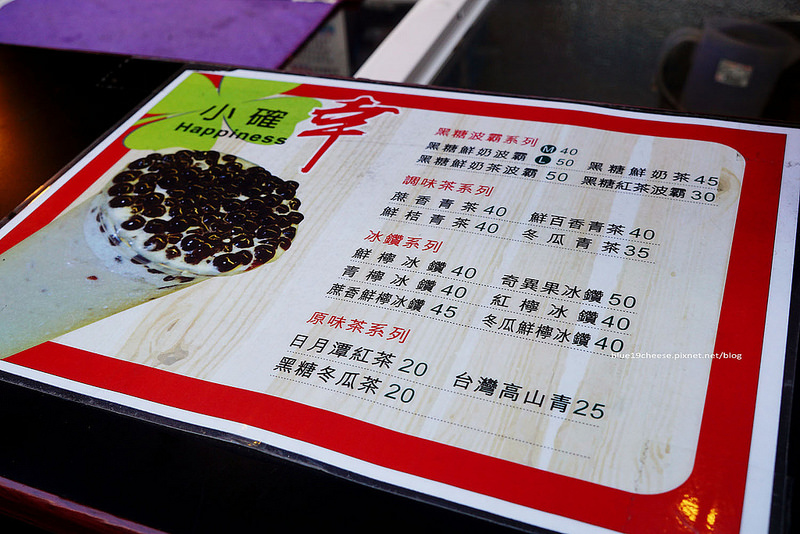 小確幸
Happiness
黑糖波霸系列
黑糖鮮奶波霸 M 40
L 50 黑糖鮮奶茶 45
黑糖鮮奶茶波霸 50 黑糖紅茶波霸 30
調味茶系列
蔗香青茶 40 鮮百香青茶 40
鮮桔青茶 40 冬瓜青茶 35
冰鑽系列
鮮檸冰鑽 40 奇異果冰鑽 50
青檸冰鑽 40 紅檸冰鑽 40
蔗香鮮檸冰鑽 45 冬瓜鮮檸冰鑽 40
原味茶系列
日月潭紅茶 20 台灣高山青 25
黑糖冬瓜茶 20
blue19cheese.pixnet.net/blog